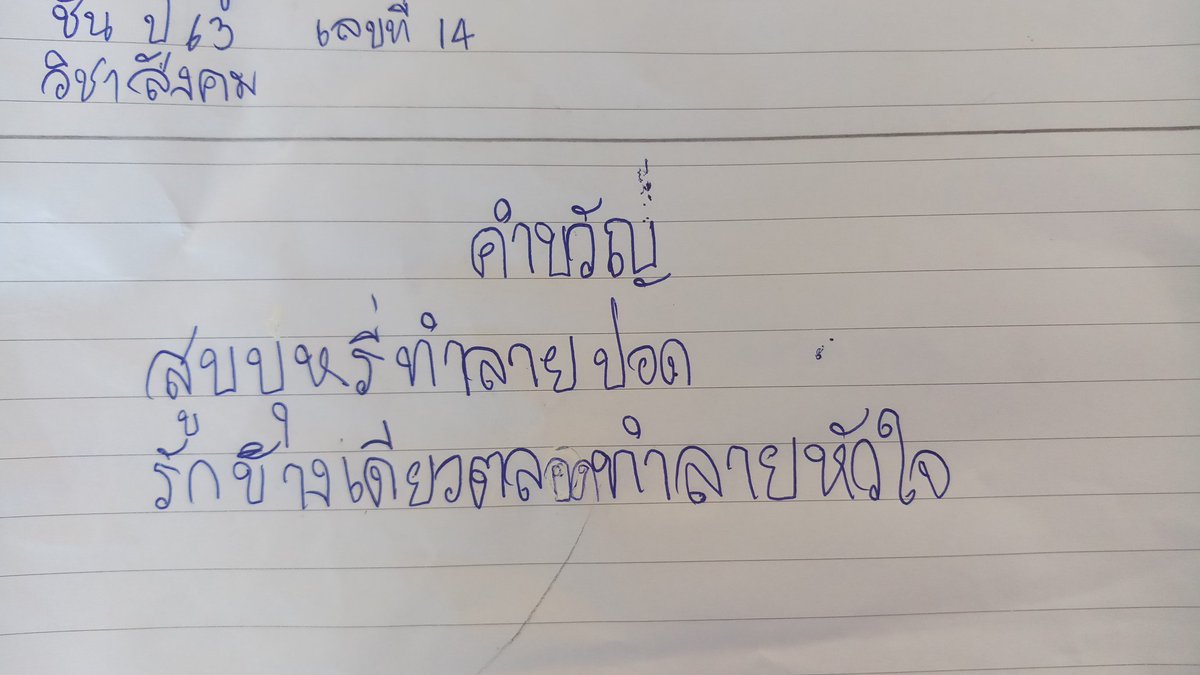 ชั้น ป 6/3 เลขที่ 14
วิชา สังคม
คำขวัญ
สูบบุหรี่ ทำลาย ปอด
รักข้างเดียวตลอดทำลายหัวใจ